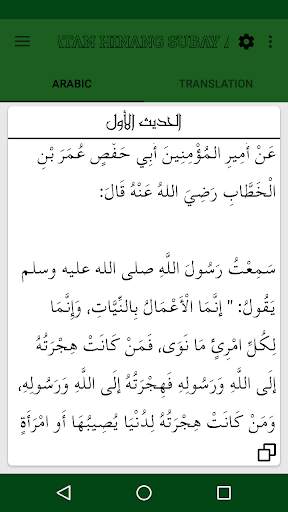 ATAM HINANG SUBAY A
ARABIC
TRANSLATION
الحديث الأول
عَنْ أَمِيرِ الْمُؤْمِنِينَ أَبِي حَفْصٍ عُمَرَ بْنِ
الْخَطَّابِ رَضِيَ اللهُ عَنْهُ قَالَ:
سَمِعْتُ رَسُولَ اللَّهِ صلى الله عليه وسلم
يَقُولُ: " إنَّمَا الْأَعْمَالُ بِالنِّيَّاتِ، وَإِنَّمَا
لِكُلِّ امْرِئٍ مَا نَوَى، فَمَنْ كَانَتْ هِجْرَتُهُ
إلَى اللَّهِ وَرَسُولِهِ فَهِجْرَتُهُ إلَى اللَّهِ وَرَسُولِهِ،
وَمَنْ كَانَتْ هِجْرَتُهُ لِدُنْيَا يُصِيبُهَا أَوِ امْرَأَةٍ